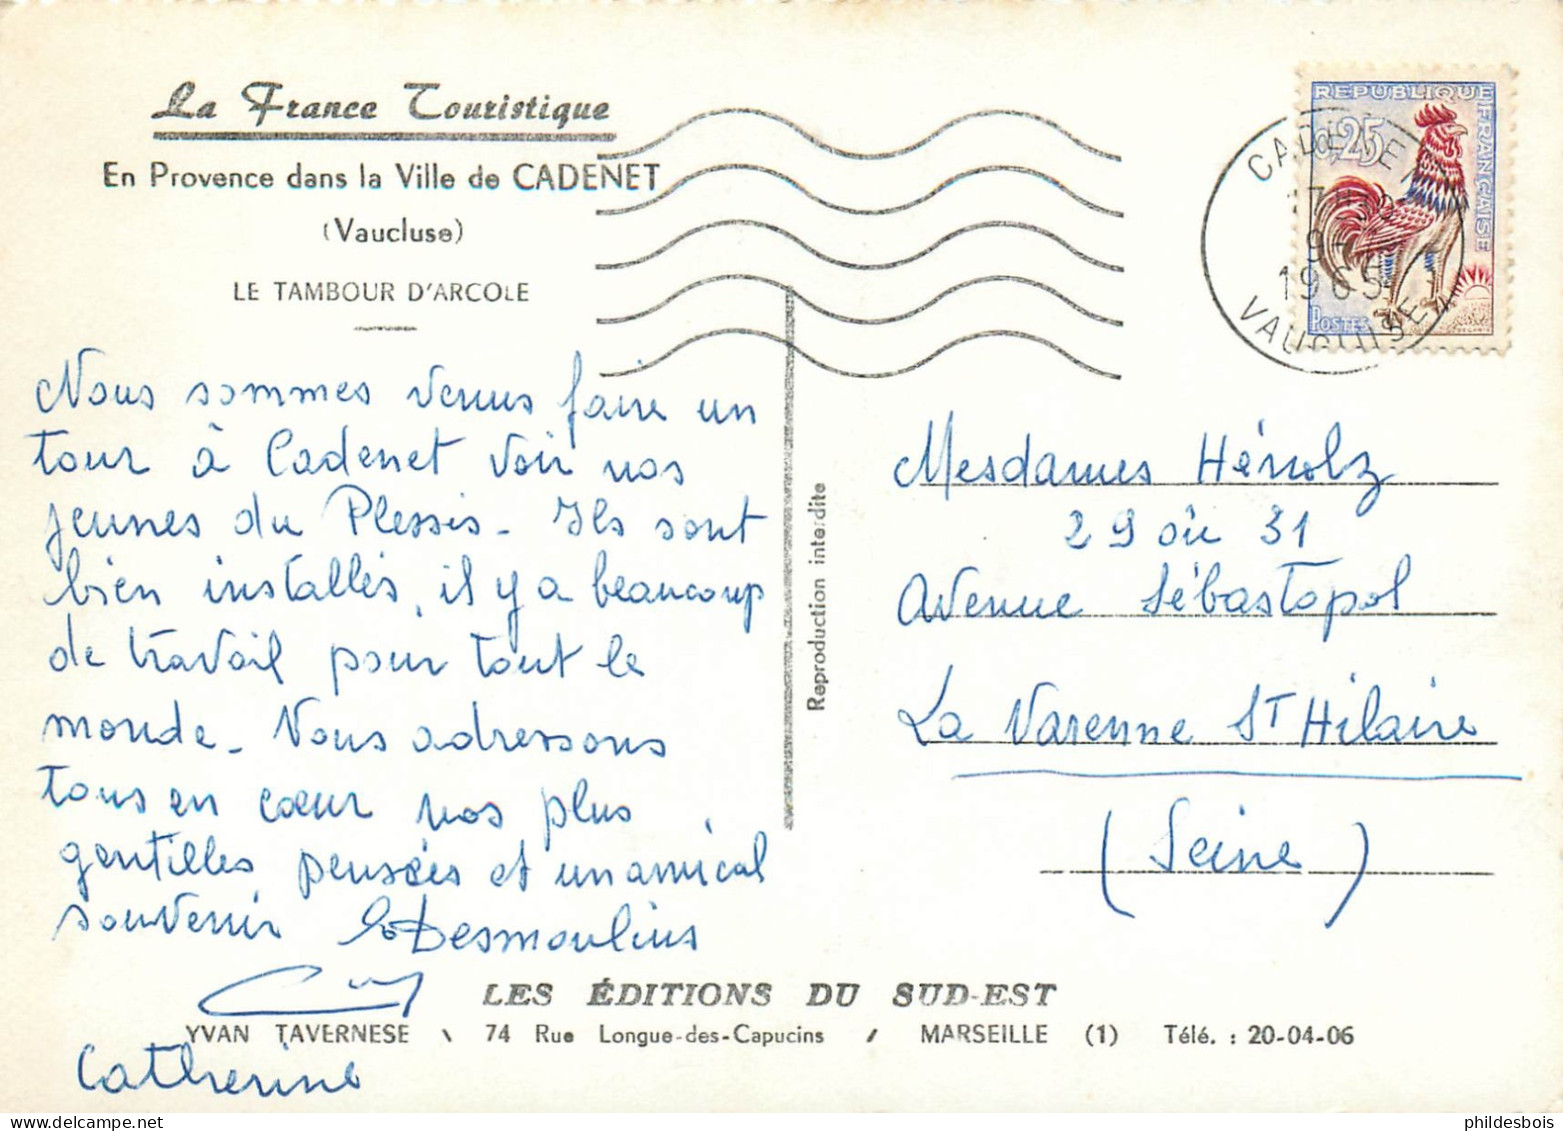 La France Touristique
En Provence dans la Ville de CADENET
(Vaucluse)
LE TAMBOUR D'ARCOLE
Nous sommes venus faire un
tour à Cadenet voir nos
jeunes du Plessis - Ils sont
bien installés, il y a beaucoup
de travail pour tout le
monde - Nous adressons
tous en cœur nos plus
gentilles pensées et un amical
souvenir Desmoulins
Catherine
Reproduction interdite
REPUBLIQUE FRANÇAISE
0,25
POSTES
CADENET
1965
VAUCLUSE
Mesdames Hérolz
29 où 31
Avenue Sébastopol
La Varenne ST Hilaire
(Seine)
LES ÉDITIONS DU SUD-EST
YVAN TAVERNESE \ 74 Rue Longue-des-Capucins / MARSEILLE (1) Télé. : 20-04-06
phildesbois